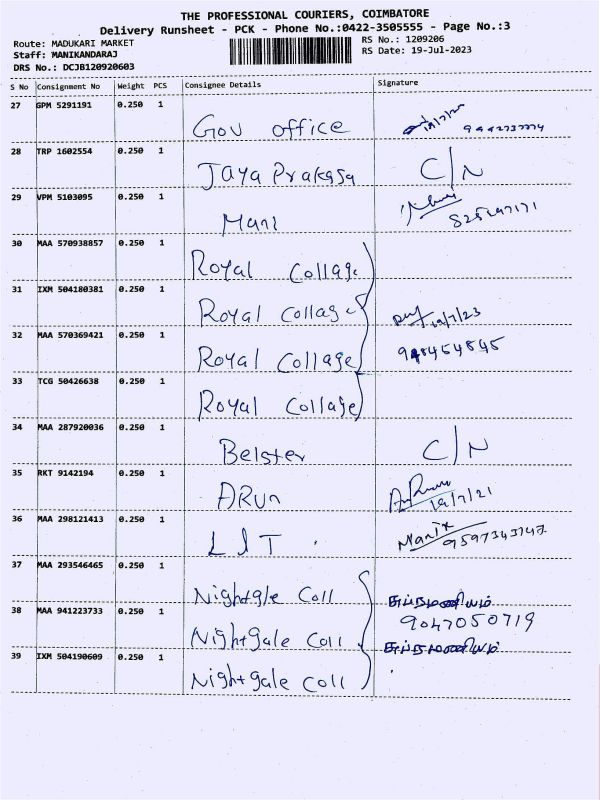 THE PROFESSIONAL COURIERS, COIMBATORE
Delivery Runsheet - PCK - Phone No.:0422-3505555 - Page No.:3
Route: MADUKARI MARKET RS No.: 1209206
Staff: MANIKANDARAJ RS Date: 19-Jul-2023
DRS No.: DCJB120920603
S No Consignment No Weight PCS Consignee Details Signature
27 GPM 5291191 0.250 1 Gov office
28 TRP 1602554 0.250 1 Jaya Prakasa C/N
29 VPM 5103095 0.250 1 Mani
30 MAA 570938857 0.250 1 Royal Collage
31 IXM 504180381 0.250 1 Royal Collage 19/7/23
32 MAA 570369421 0.250 1 Royal Collage
33 TCG 50426638 0.250 1 Royal Collage
34 MAA 287920036 0.250 1 Belster C/N
35 RKT 9142194 0.250 1 ARUn 19/7/21
36 MAA 298121413 0.250 1 LIT.
37 MAA 293546465 0.250 1 Nightgle Coll
38 MAA 941223733 0.250 1 Nightgale Coll 9047050719
39 IXM 504190609 0.250 1 Nightgale Coll